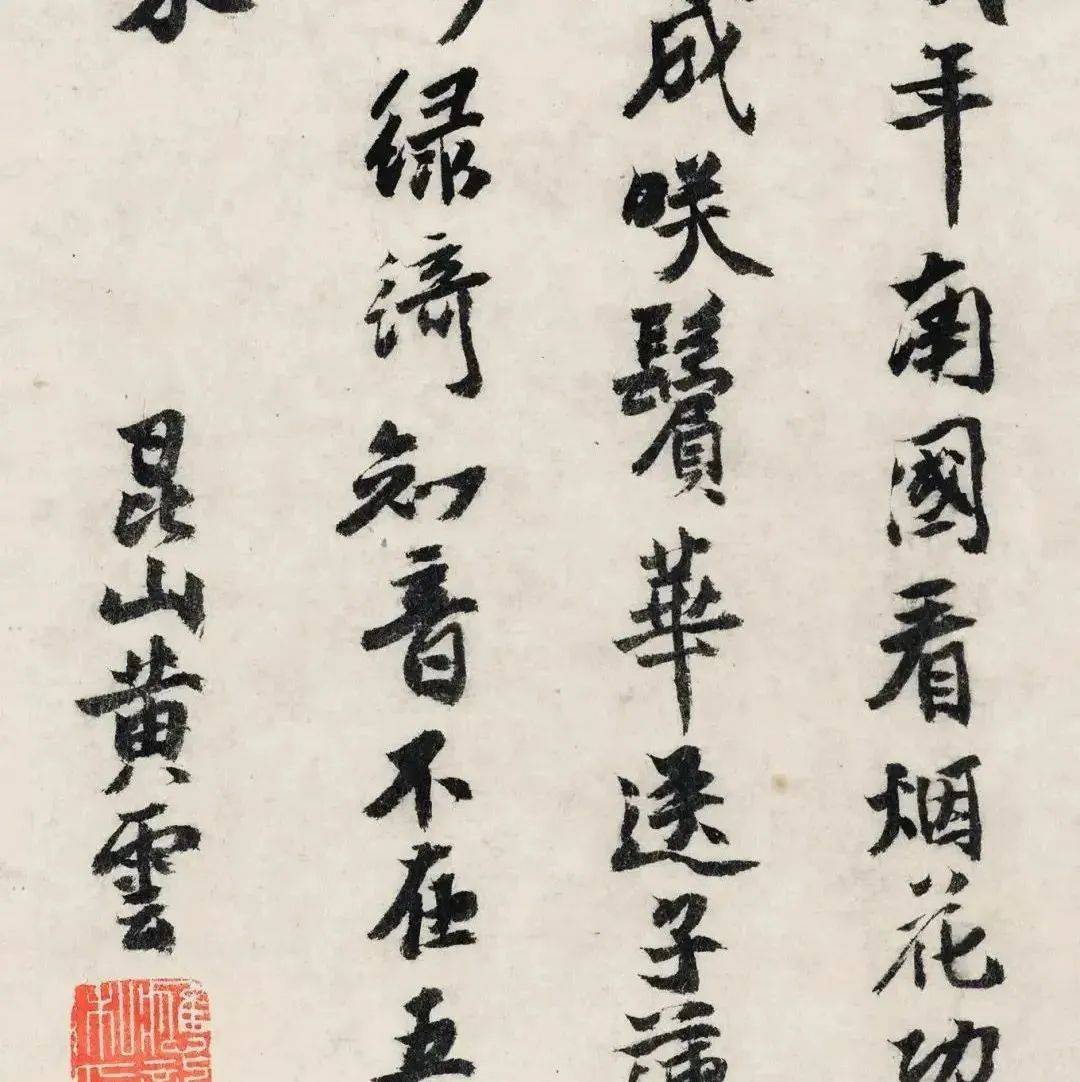 年南國看烟花功
成咲鬢華送子蒲
綠漪知音不在五
昆山黄雲